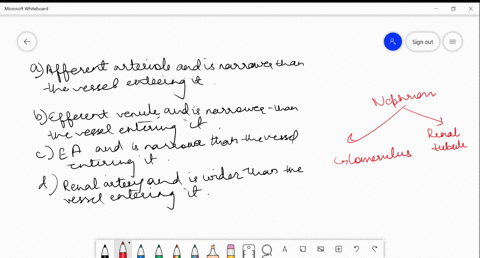 Microsoft Whiteboard
Sign out
a) Afferent arteriole and is narrower than
the vessel entering it.
b) Efferent venule and is narrower than
the vessel entering it.
c) EA and is narrower than the vessel
entering it.
d) Renal artery and is wider than the
vessel entering it.
Nephron
Glomerulus
Renal
tubule